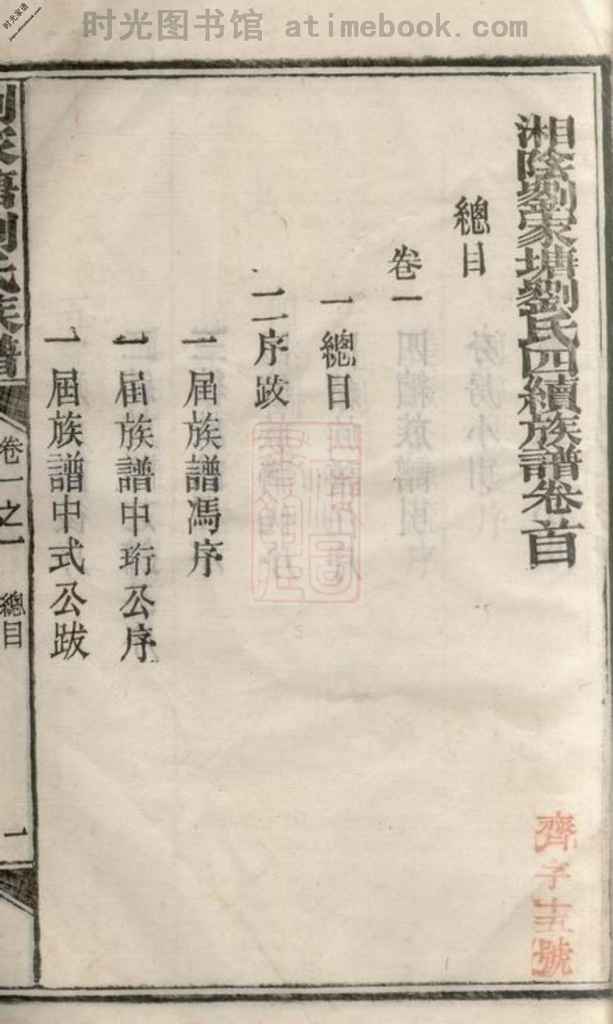 时光图书馆 atimebook.com
时光家谱
湘陰劉家塘劉氏四續族譜卷首
總目
卷一
一總目
二序跋
一屆族譜馮序
一屆族譜中珩公序
一屆族譜中式公跋
劉家塘劉氏族譜
卷一之一
總目
一
齊字
號